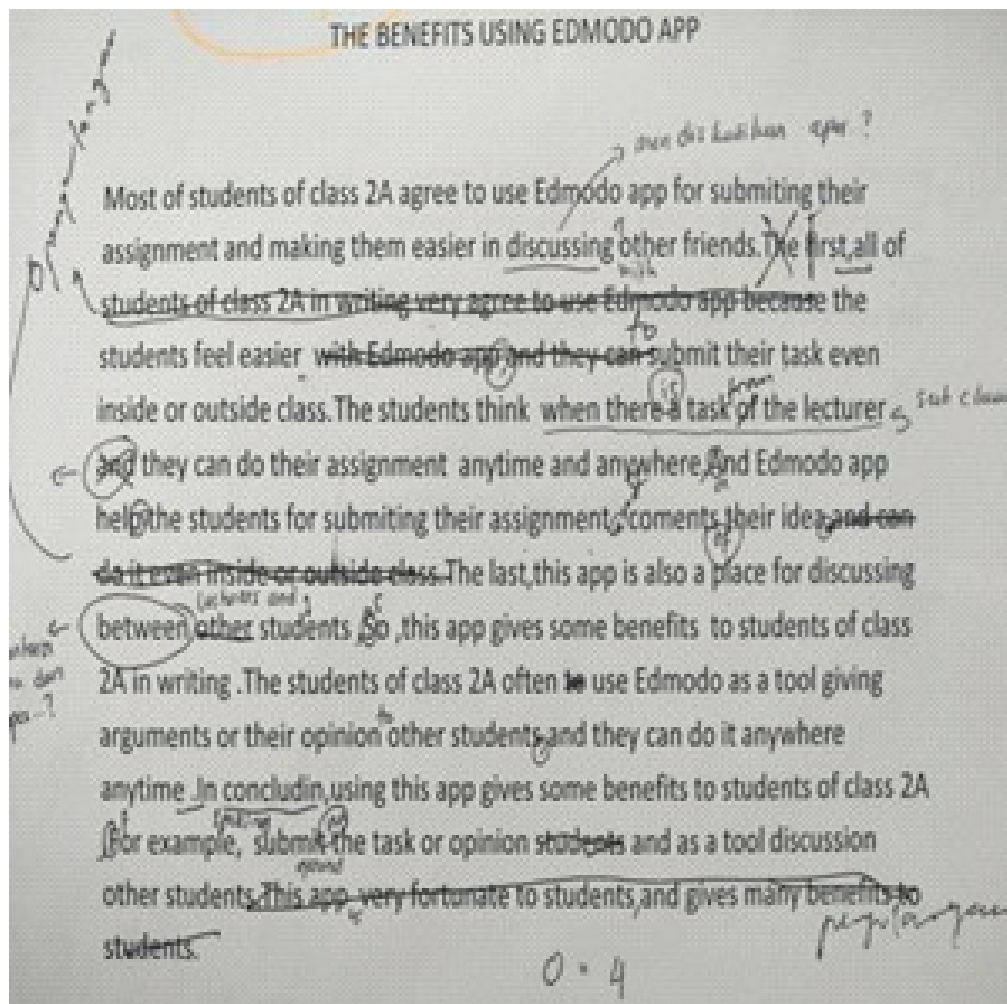 THE BENEFITS USING EDMODO APP
mendiskusikan apa ?
Most of students of class 2A agree to use Edmodo app for submiting their
assignment and making them easier in discussing other friends.The first,all of
with
students of class 2A in writing very agree to use Edmodo app because the
to
students feel easier with Edmodo app and they can submit their task even
is from
inside or outside class.The students think when there a task of the lecturer
and they can do their assignment anytime and anywhere,And Edmodo app
help the students for submiting their assignment, coments their idea and can
of
do it even inside or outside class.The last,this app is also a place for discussing
lecturers and
between other students .So ,this app gives some benefits to students of class
2A in writing .The students of class 2A often to use Edmodo as a tool giving
to
arguments or their opinion other students and they can do it anywhere
anytime .In concludin,using this app gives some benefits to students of class 2A
.For example, submit the task or opinion students and as a tool discussion
other students.This app very fortunate to students,and gives many benefits to
is
students.
0 = 4